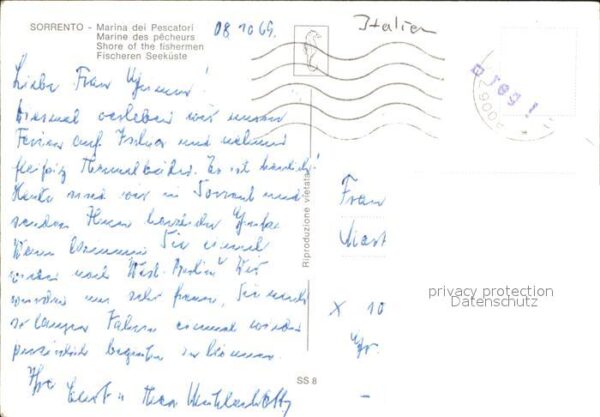 SORRENTO - Marina dei Pescatori
Marine des pêcheurs
Shore of the fishermen
Fischeren Seeküste
08 10 69.
Italien
Liebe Frau
Diesmal verleben wir unsere
Ferien auf Ischia und nehmen
fleißig Thermalbäder. Es ist herrlich!
Heute sind wir in Sorrent und
senden Ihnen herzliche Grüße.
Wann kommen Sie einmal
wieder nach West-Berlin? Wir
würden uns sehr freuen, Sie nach
so langen Jahren einmal wieder
persönlich begrüßen zu können.
Ihre
Riproduzione vietata
SS 8
Frau
X 10
privacy protection
Datenschutz